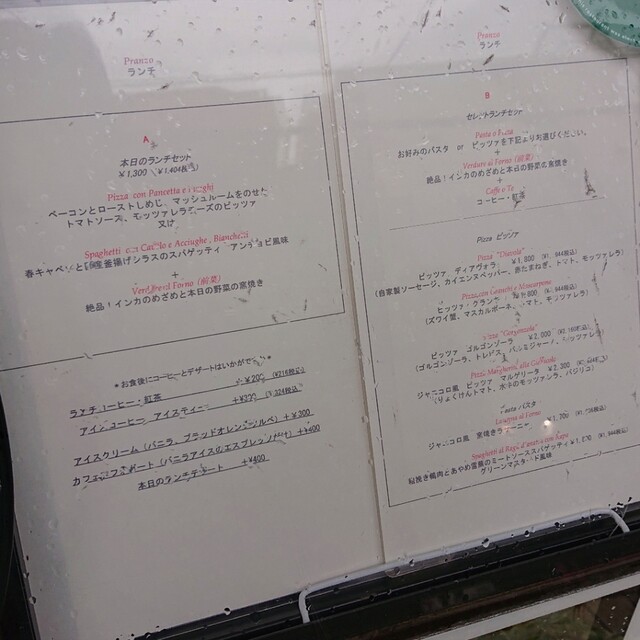 Pranzo
ランチ
A
本日のランチセット
¥1,300
Pizza con Pancetta e
ベーコンとローストしめじ、マッシュルームをのせた
トマトソース、モッツァレラチーズのピッツァ
又は
Spaghetti con Cavolo e Acciughe, Bianchetti
春キャベツと 産釜揚げシラスのスパゲッティ アンチョビ風味
+
Verdure al Forno (前菜)
絶品！インカのめざめと本日の野菜の窯焼き
*お食後にコーヒーとデザートはいかがで
ランチコーヒー・紅茶 ¥200 (¥216税込)
アイスコーヒー アイスティー +¥300
アイスクリーム (バニラ、ブラッドオレンジソルベ) +¥300
カフェアフォガート (バニラアイスのエスプレッソがけ) +¥400
本日のランチデザート +¥400
Pranzo
ランチ
B
セレクトランチセット
Pasta o Pizza
お好みのパスタ or ピッツァを下記よりお選びください。
+
Verdure al Forno (前菜)
絶品！インカのめざめと本日の野菜の窯焼き
+
Caffe o Te
コーヒー・紅茶
Pizza ピッツァ
Pizza "Diavola"
ピッツァ ディアヴォラ ¥1,800 (¥1,944税込)
(自家製ソーセージ、カイエンヌペッパー、赤たまねぎ、トマト、モッツァレラ)
Pizza con Granchi e Mascarpone
ピッツァ グランキ
(ズワイ蟹、マスカルポーネ、トマト、モッツァレラ)
Pizza "Gorgonzola"
ピッツァ ゴルゴンゾーラ ¥2,000 (¥2,160税込)
(ゴルゴンゾーラ、トレビス、パルミジャーノ、モッツァレラ)
Pizza Margherita alla Gianicolo
ジャニコロ風 ピッツァ マルゲリータ ¥2,300
(りょくけんトマト、水牛のモッツァレラ、バジリコ)
Pasta パスタ
Lasagna al Forno
ジャニコロ風 窯焼きラザニア
Spaghetti al Ragu
粗挽き鴨肉とあやめ雪豚のミートソーススパゲッティ
グリーンマスタード風味